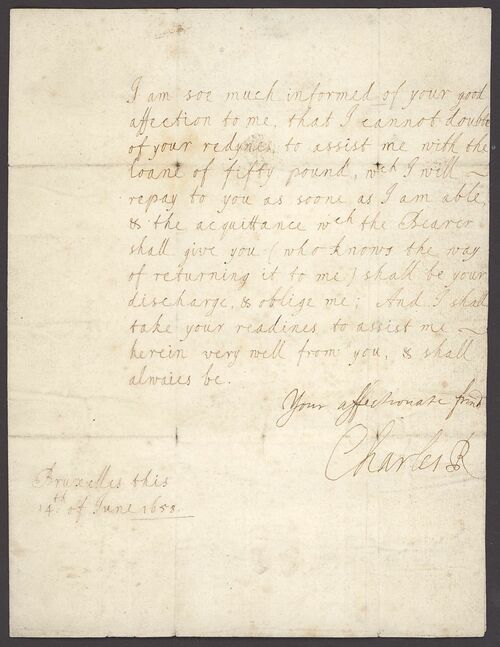 I am soe much informed of your good
affection to me, that I cannot doubt
of your redynes, to assist me with the
loane of fifty pound, wch I will ~
repay to you as soone as I am able,
& the acquittance wch the Bearer
shall give you (who knows the way
of returning it to me) shall be your
discharge, & oblige me; And I shall
take your readines to assist me ~
herein very well from you, & shall
alwaies be.
Your affectionate frind
Charles R
Bruxelles this
14th of June 1658.